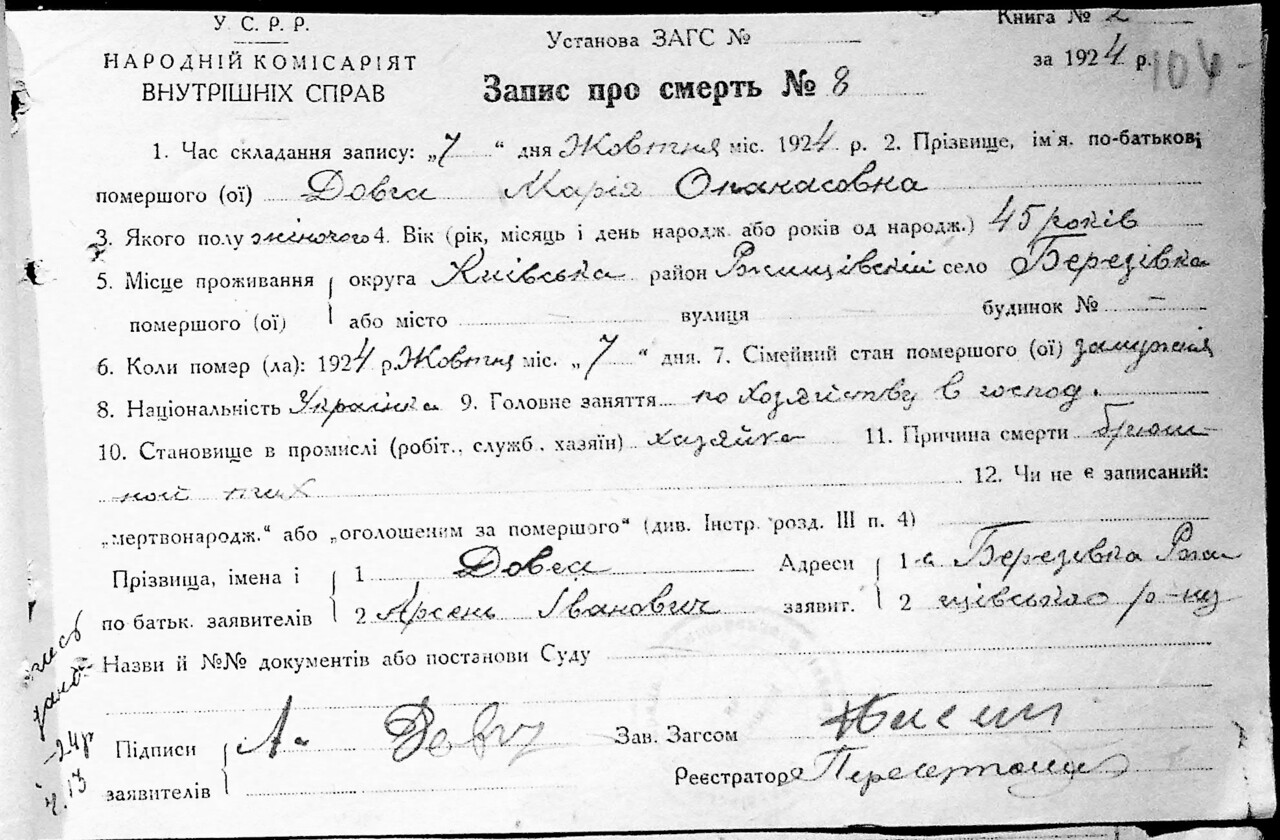 У. С. Р. Р.
НАРОДНІЙ КОМІСАРІЯТ
ВНУТРІШНІХ СПРАВ
Установа ЗАГС №
Книга № 2
за 1924 р.
104
Запис про смерть № 8
1. Час складання запису: „7“ дня Жовтня міс. 1924 р. 2. Прізвище, ім'я, по-батькові
помершого (ої) Довга Марія Опанасовна
3. Якого полу жіночого 4. Вік (рік, місяць і день народж. або років од народж.) 45 років
5. Місце проживання помершого (ої) округа Київська район Ржищівский село Березівка
або місто вулиця будинок № —
6. Коли помер (ла): 1924 р. Жовтня міс. „7“ дня. 7. Сімейний стан помершого (ої) замужня
8. Національність Українка 9. Головне заняття по хозяйству в господ.
10. Становище в промислі (робіт., служб., хазяїн) хазяйка 11. Причина смерти брюш-
ной тих 12. Чи не є записаний:
„мертвонародж.“ або „оголошеним за помершого“ (див. Інстр. розд. III п. 4)
Прізвища, імена і по батьк. заявителів 1 Довга Адреси заявит. 1 с. Березівка Ржи
2 Арсень Іванович 2 щівського р-ну
Назви й №№ документів або постанови Суду
Підписи заявителів А. Довгу Зав. Загсом
Реєстратор
-24р
ч. 13